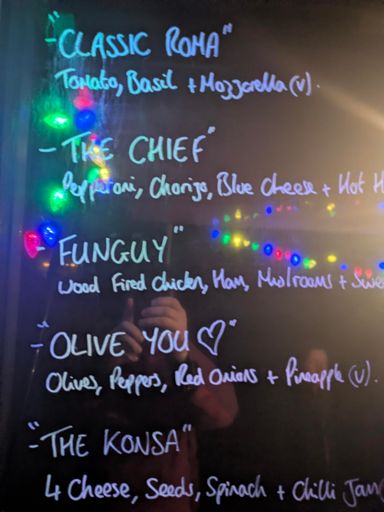 - "CLASSIC ROMA"
Tomato, Basil + Mozzarella (v).
- "THE CHIEF"
Pepperoni, Chorizo, Blue Cheese + Hot H
FUNGUY"
Wood Fired Chicken, Ham, Mushrooms + Swe
- "OLIVE YOU ♡"
Olives, Peppers, Red Onions + Pineapple (v).
- "THE KONSA"
4 Cheese, Seeds, Spinach + Chilli Jam